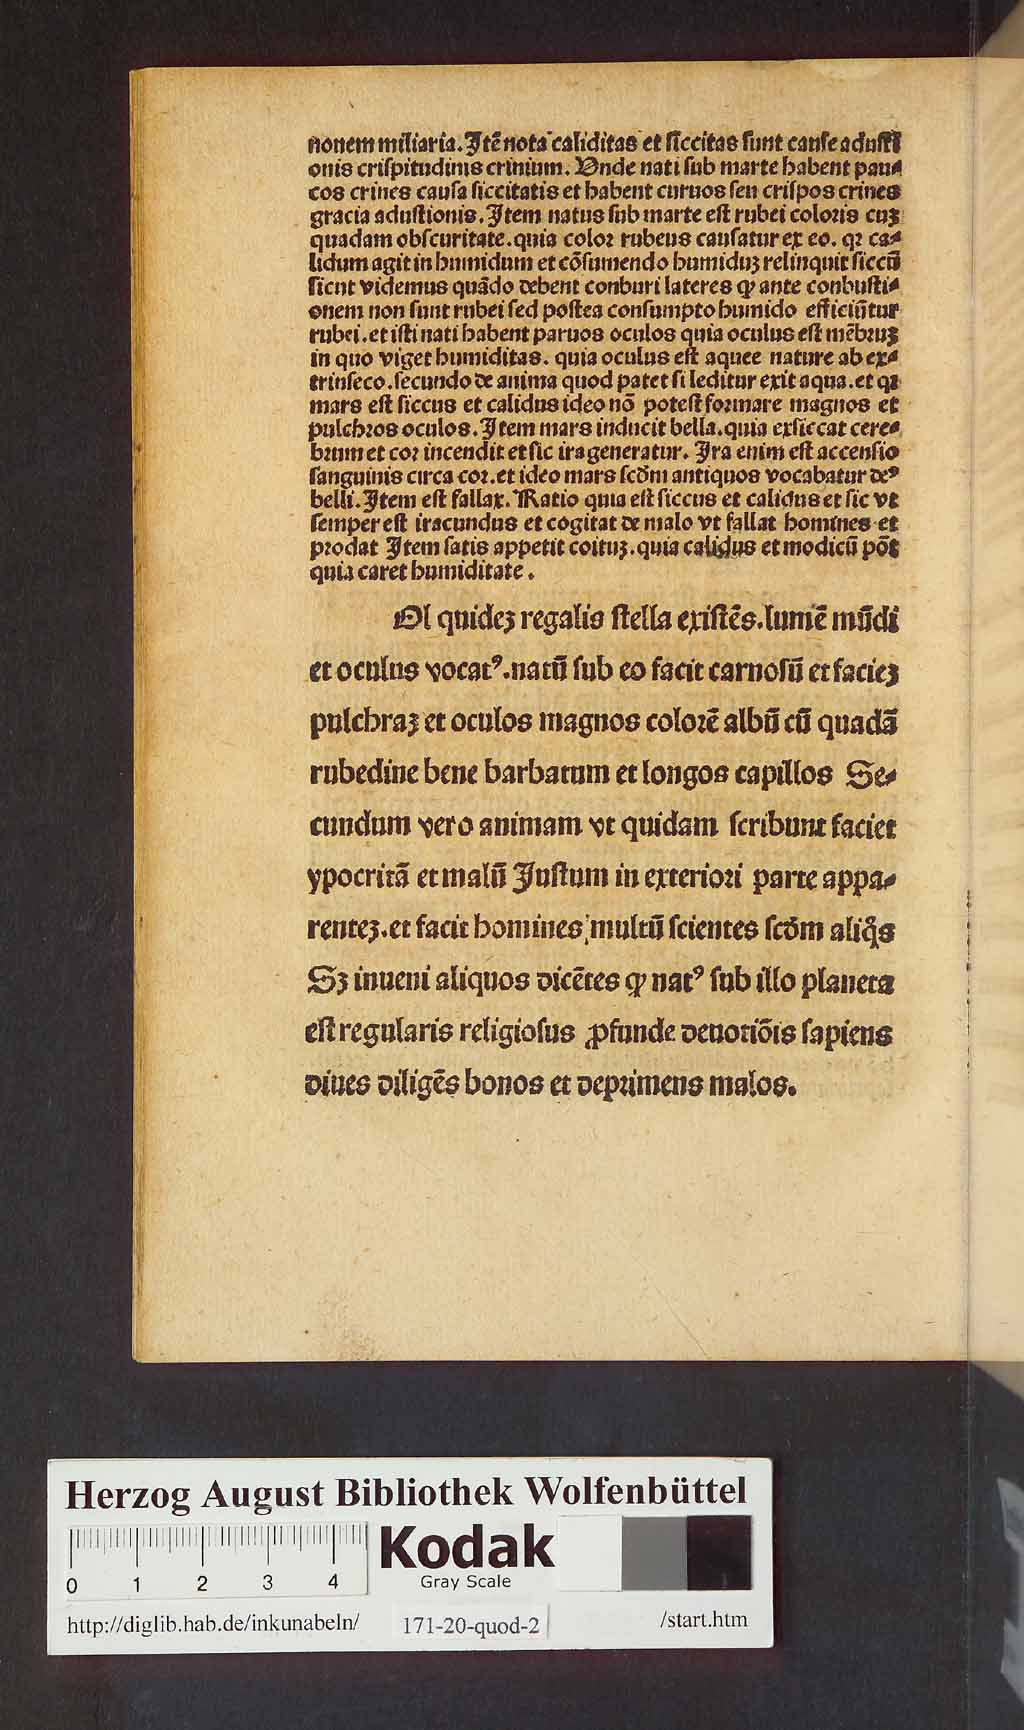 nonem miliaria. Itẽ nota caliditas et ſiccitas ſunt cauſe aduſti
onis criſpitudinis crinium. Vnde nati ſub marte habent pau⸗
cos crines cauſa ſiccitatis et habent curuos ſeu criſpos crines
gracia aduſtionis. Item natus ſub marte eſt rubei coloꝛis cuꝫ
quadam obſcuritate. quia coloꝛ rubeus cauſatur ex eo. qꝛ ca⸗
lidum agit in humidum et cõſumendo humiduꝫ relinquit ſiccũ
ſicut videmus quãdo debent conburi lateres ꝙ ante conbuſti⸗
onem non ſunt rubei ſed poſtea conſumpto humido efficiũtur
rubei. et iſti nati habent paruos oculos quia oculus eſt mẽbꝛuꝫ
in quo viget humiditas. quia oculus eſt aquee nature ab ex⸗
trinſeco. ſecundo de anima quod patet ſi leditur exit aqua. et qꝛ
mars eſt ſiccus et calidus ideo nõ poteſt foꝛmare magnos et
pulchꝛos oculos. Item mars inducit bella. quia exſiccat cere⸗
bꝛum et coꝛ incendit et ſic ira generatur. Ira enim eſt accenſio
ſanguinis circa coꝛ. et ideo mars ſcḋm antiquos vocabatur deꝰ
belli. Item eſt fallax. Ratio quia eſt ſiccus et calidus et ſic vt
ſemper eſt iracundus et cogitat de malo vt fallat homines et
pꝛodat Item ſatis appetit coituꝫ. quia calidus et modicũ põt
quia caret humiditate.
Ol quideꝫ regalis ſtella exiſtẽs. lumẽ mũdi
et oculus vocatꝰ. natũ ſub eo facit carnoſũ et facieꝫ
pulchraꝫ et oculos magnos coloꝛẽ albũ cũ quadã
rubedine bene barbatum et longos capillos Se⸗
cundum vero animam vt quidam ſcribunt faciet
ypocritã et malũ Iuſtum in exterioꝛi parte appa⸗
renteꝫ. et facit homines multũ ſcientes ſcḋm aliq̃s
Sꝫ inueni aliquos dicẽtes ꝙ natꝰ ſub illo planeta
eſt regularis religioſus ꝓfunde deuotiõis ſapiens
diues diligẽs bonos et depꝛimens malos.
Herzog August Bibliothek Wolfenbüttel
Kodak
Gray Scale
0 1 2 3 4
http://diglib.hab.de/inkunabeln/ 171-20-quod-2 /start.htm